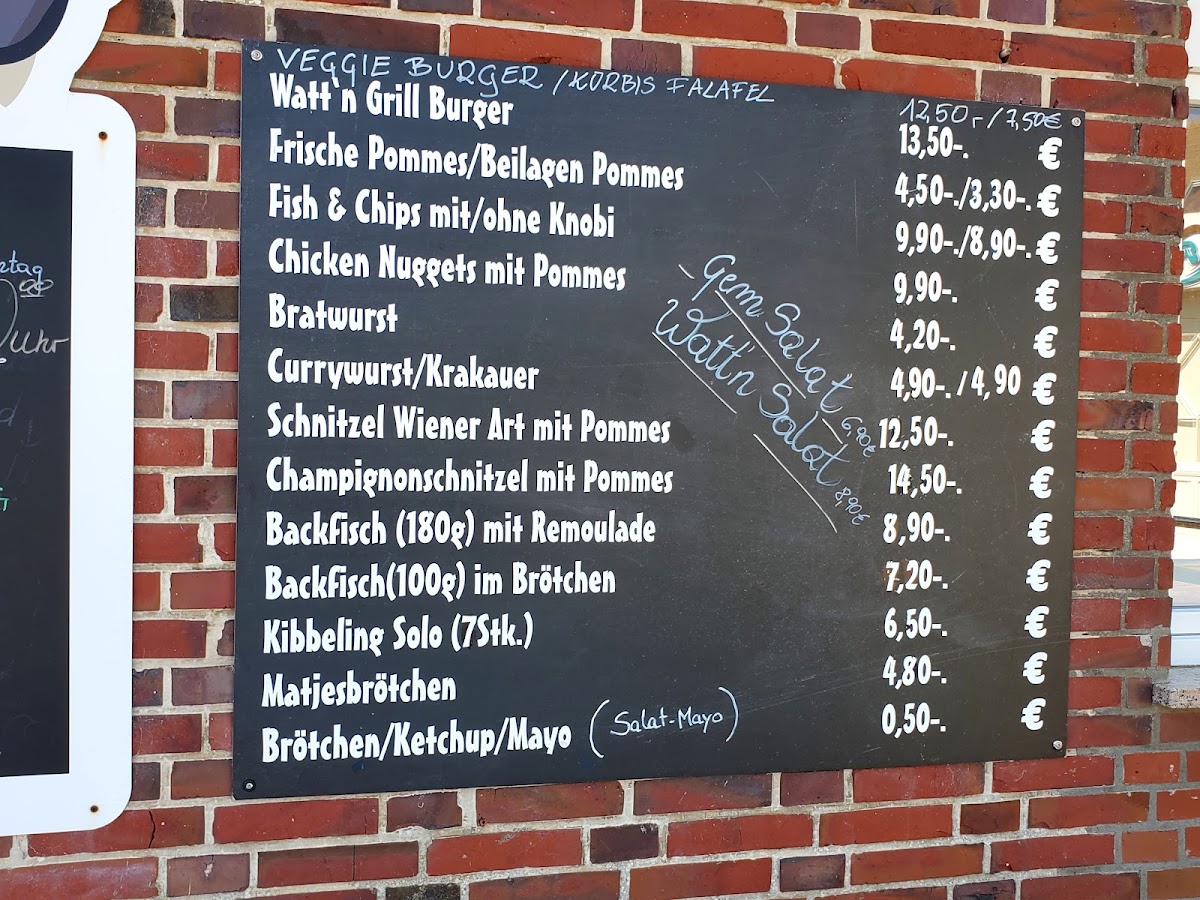 VEGGIE BURGER / KÜRBIS FALAFEL 12,50,- / 7,50€
Watt'n Grill Burger 13,50-. €
Frische Pommes/Beilagen Pommes 4,50-./3,30-. €
Fish & Chips mit/ohne Knobi 9,90-./8,90-. €
Chicken Nuggets mit Pommes 9,90-. €
Bratwurst 4,20-. €
Currywurst/Krakauer 4,90-. / 4,90 €
Schnitzel Wiener Art mit Pommes 12,50-. €
Champignonschnitzel mit Pommes 14,50-. €
Backfisch (180g) mit Remoulade 8,90-. €
Backfisch(100g) im Brötchen 7,20-. €
Kibbeling Solo (7Stk.) 6,50-. €
Matjesbrötchen 4,80-. €
Brötchen/Ketchup/Mayo (Salat-Mayo) 0,50-. €
Gem. Salat 6,90€
Watt'n Salat 8,90€
Uhr